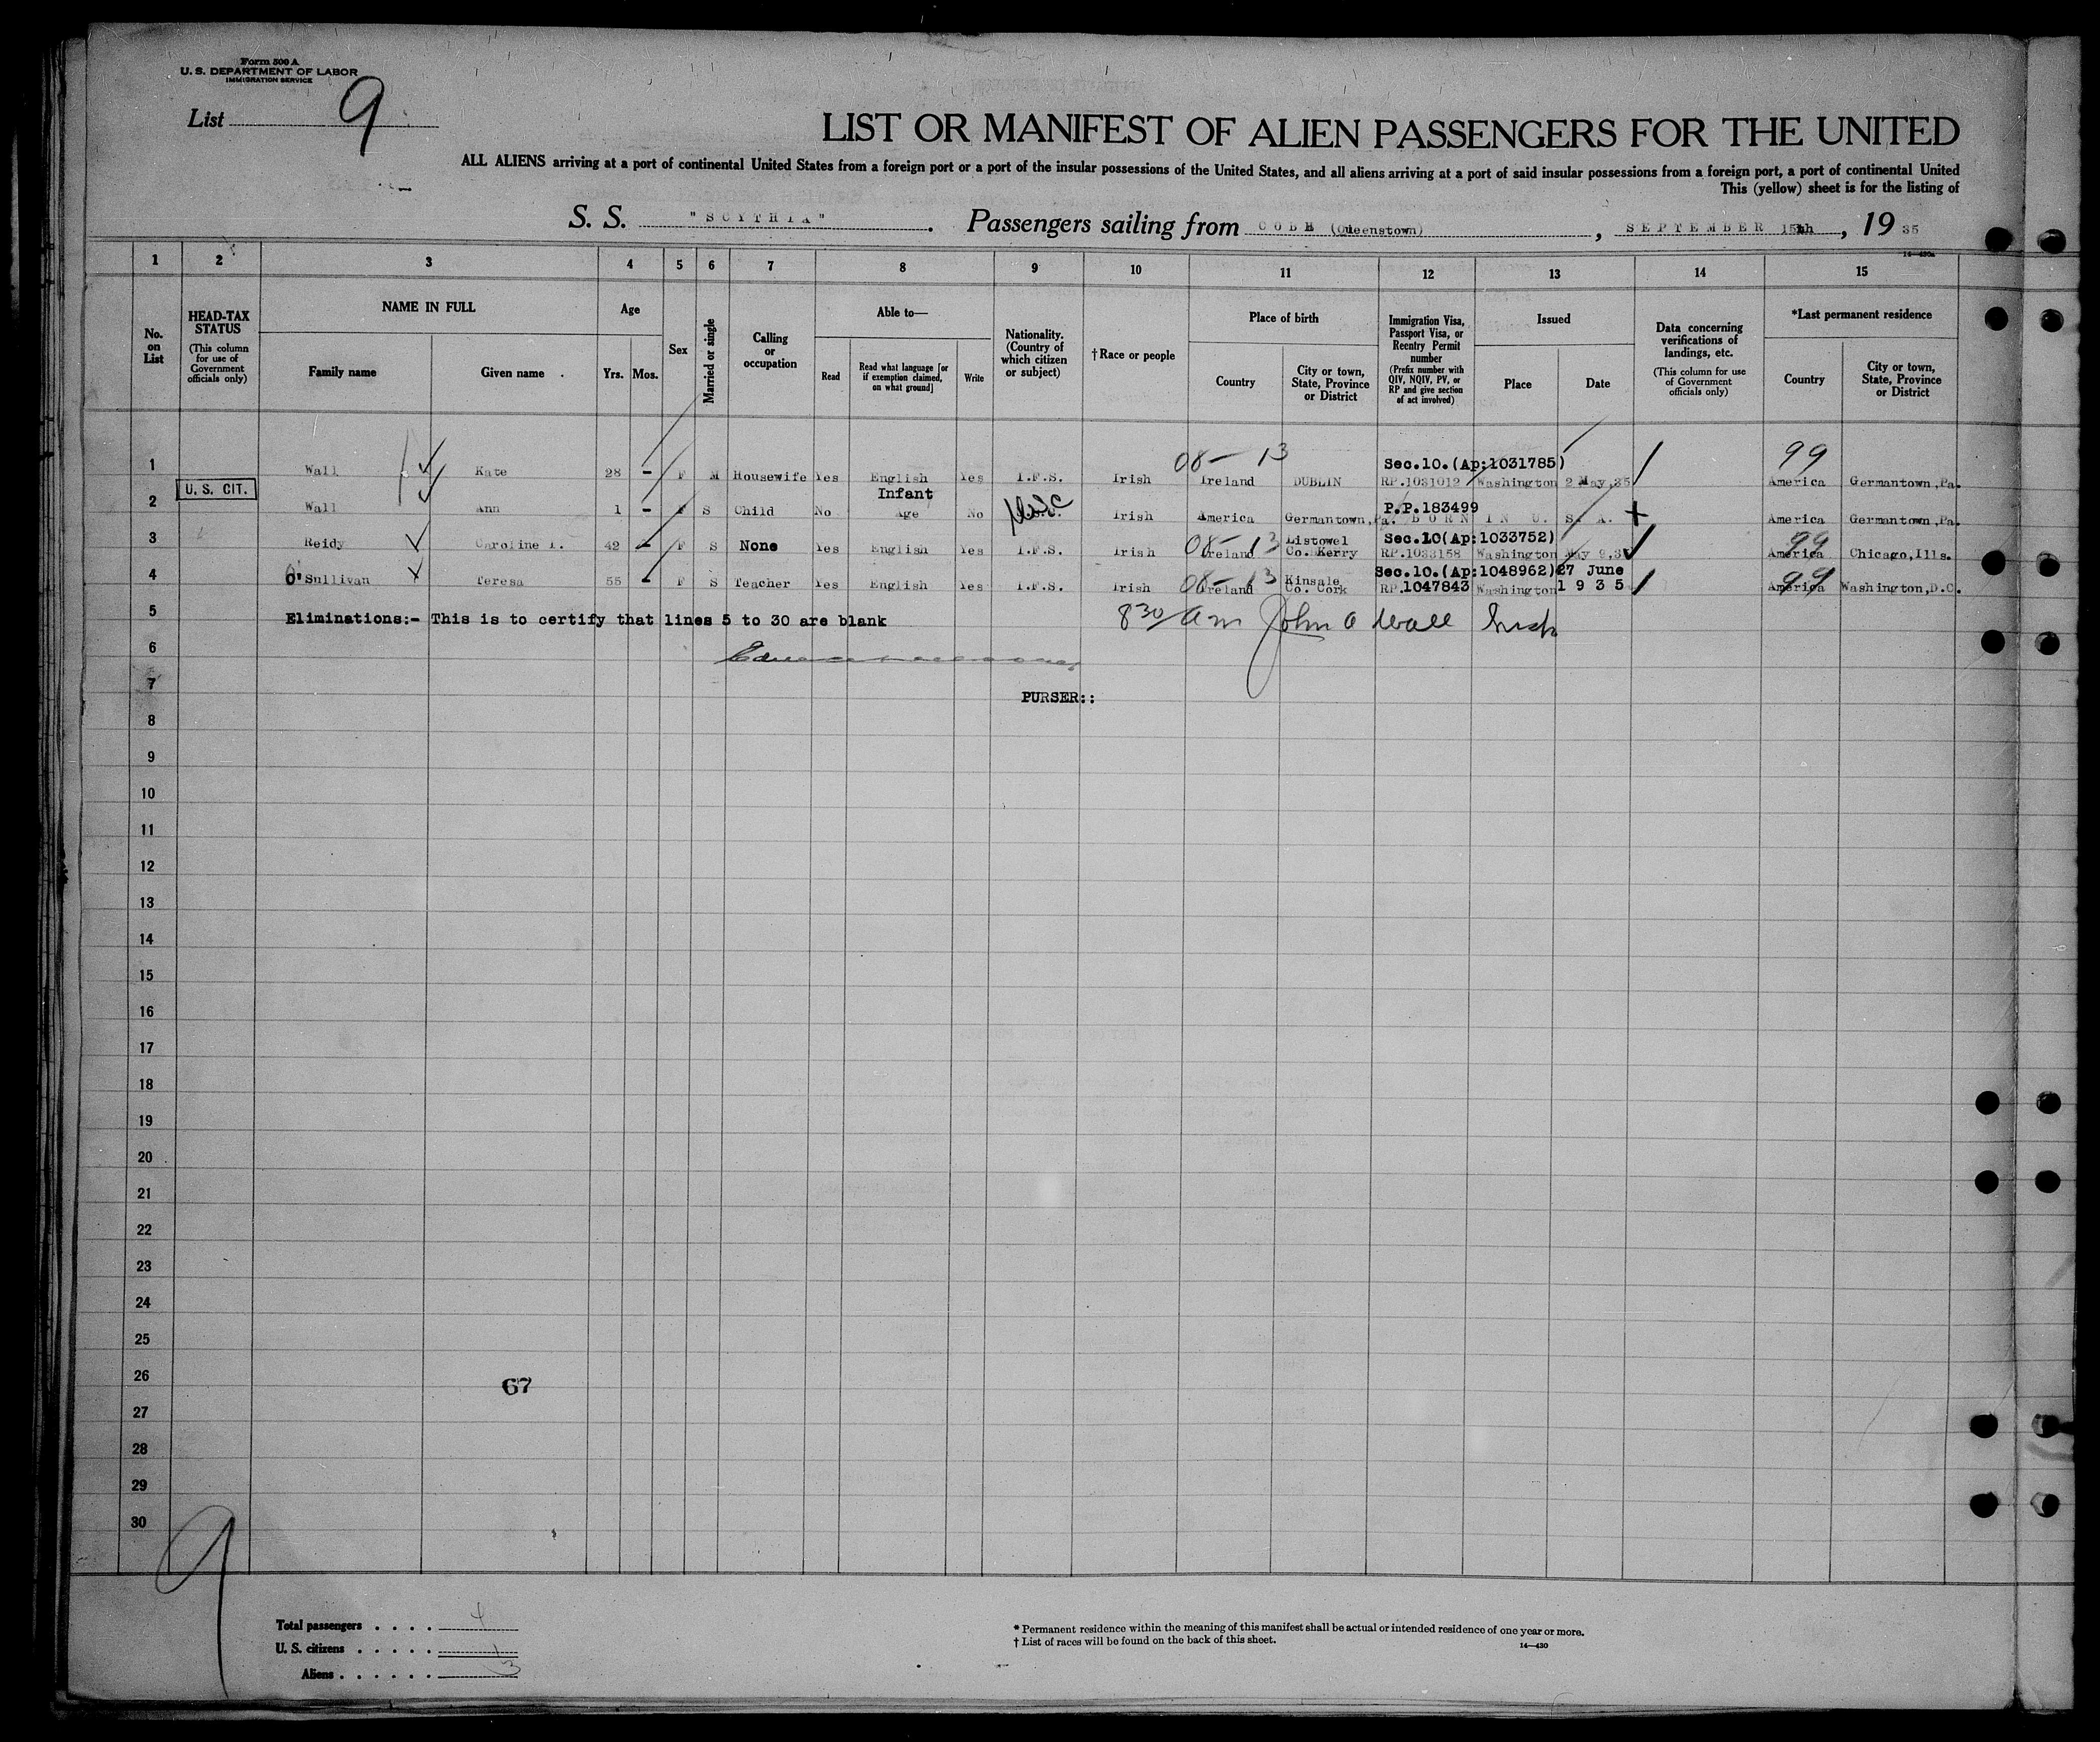 Form 500 A
U. S. DEPARTMENT OF LABOR
IMMIGRATION SERVICE
List 9
LIST OR MANIFEST OF ALIEN PASSENGERS FOR THE UNITED
ALL ALIENS arriving at a port of continental United States from a foreign port or a port of the insular possessions of the United States, and all aliens arriving at a port of said insular possessions from a foreign port, a port of continental United
This (yellow) sheet is for the listing of
S. S. "SCYTHIA". Passengers sailing from COBH (Queenstown), SEPTEMBER 15th, 19 35
14—430a
1 2 3 4 5 6 7 8 9 10 11 12 13 14 15
No. on List
HEAD-TAX STATUS (This column for use of Government officials only)
NAME IN FULL
Family name
Given name
Age
Yrs. Mos.
Sex
Married or single
Calling or occupation
Able to—
Read
Read what language [or if exemption claimed, on what ground]
Write
Nationality. (Country of which citizen or subject)
†Race or people
Place of birth
Country
City or town, State, Province or District
Immigration Visa, Passport Visa, or Reentry Permit number (Prefix number with QIV, NQIV, PV, or RP and give section of act involved)
Issued
Place
Date
Data concerning verifications of landings, etc. (This column for use of Government officials only)
*Last permanent residence
Country
City or town, State, Province or District
08— 13 Sec.10.(Ap:1031785) 99
1 Wall Kate 28 - F M Housewife Yes English Yes I.F.S. Irish Ireland DUBLIN RP.1031012 Washington 2 May,35 America Germantown,Pa.
U. S. CIT.
Infant P.P.183499
2 Wall Ann 1 - F S Child No Age No Irish America Germantown,Pa. BORN IN U. S. A. America Germantown,Pa.
08— 13 Listowel Sec.10(Ap:1033752) 99
3 Reidy Caroline 42 - F S None Yes English Yes I.F.S. Irish Ireland Co. Kerry RP.1033158 Washington May 9,35 America Chicago,Ills.
08— 13 Kinsale Sec.10.(Ap:1048962) 27 June 99
4 O'Sullivan Teresa 55 - F S Teacher Yes English Yes I.F.S. Irish Ireland Co. Cork RP.1047843 Washington 1935 America Washington,D.C.
5 Eliminations:- This is to certify that lines 5 to 30 are blank 8 30/ am John A Wall Insp
6
7 PURSER::
8
9
10
11
12
13
14
15
16
17
18
19
20
21
22
23
24
25
26 67
27
28
29
30
9
Total passengers . . . . 4
U. S. citizens . . . . . 1
Aliens . . . . . . 3
* Permanent residence within the meaning of this manifest shall be actual or intended residence of one year or more.
† List of races will be found on the back of this sheet.
14—430